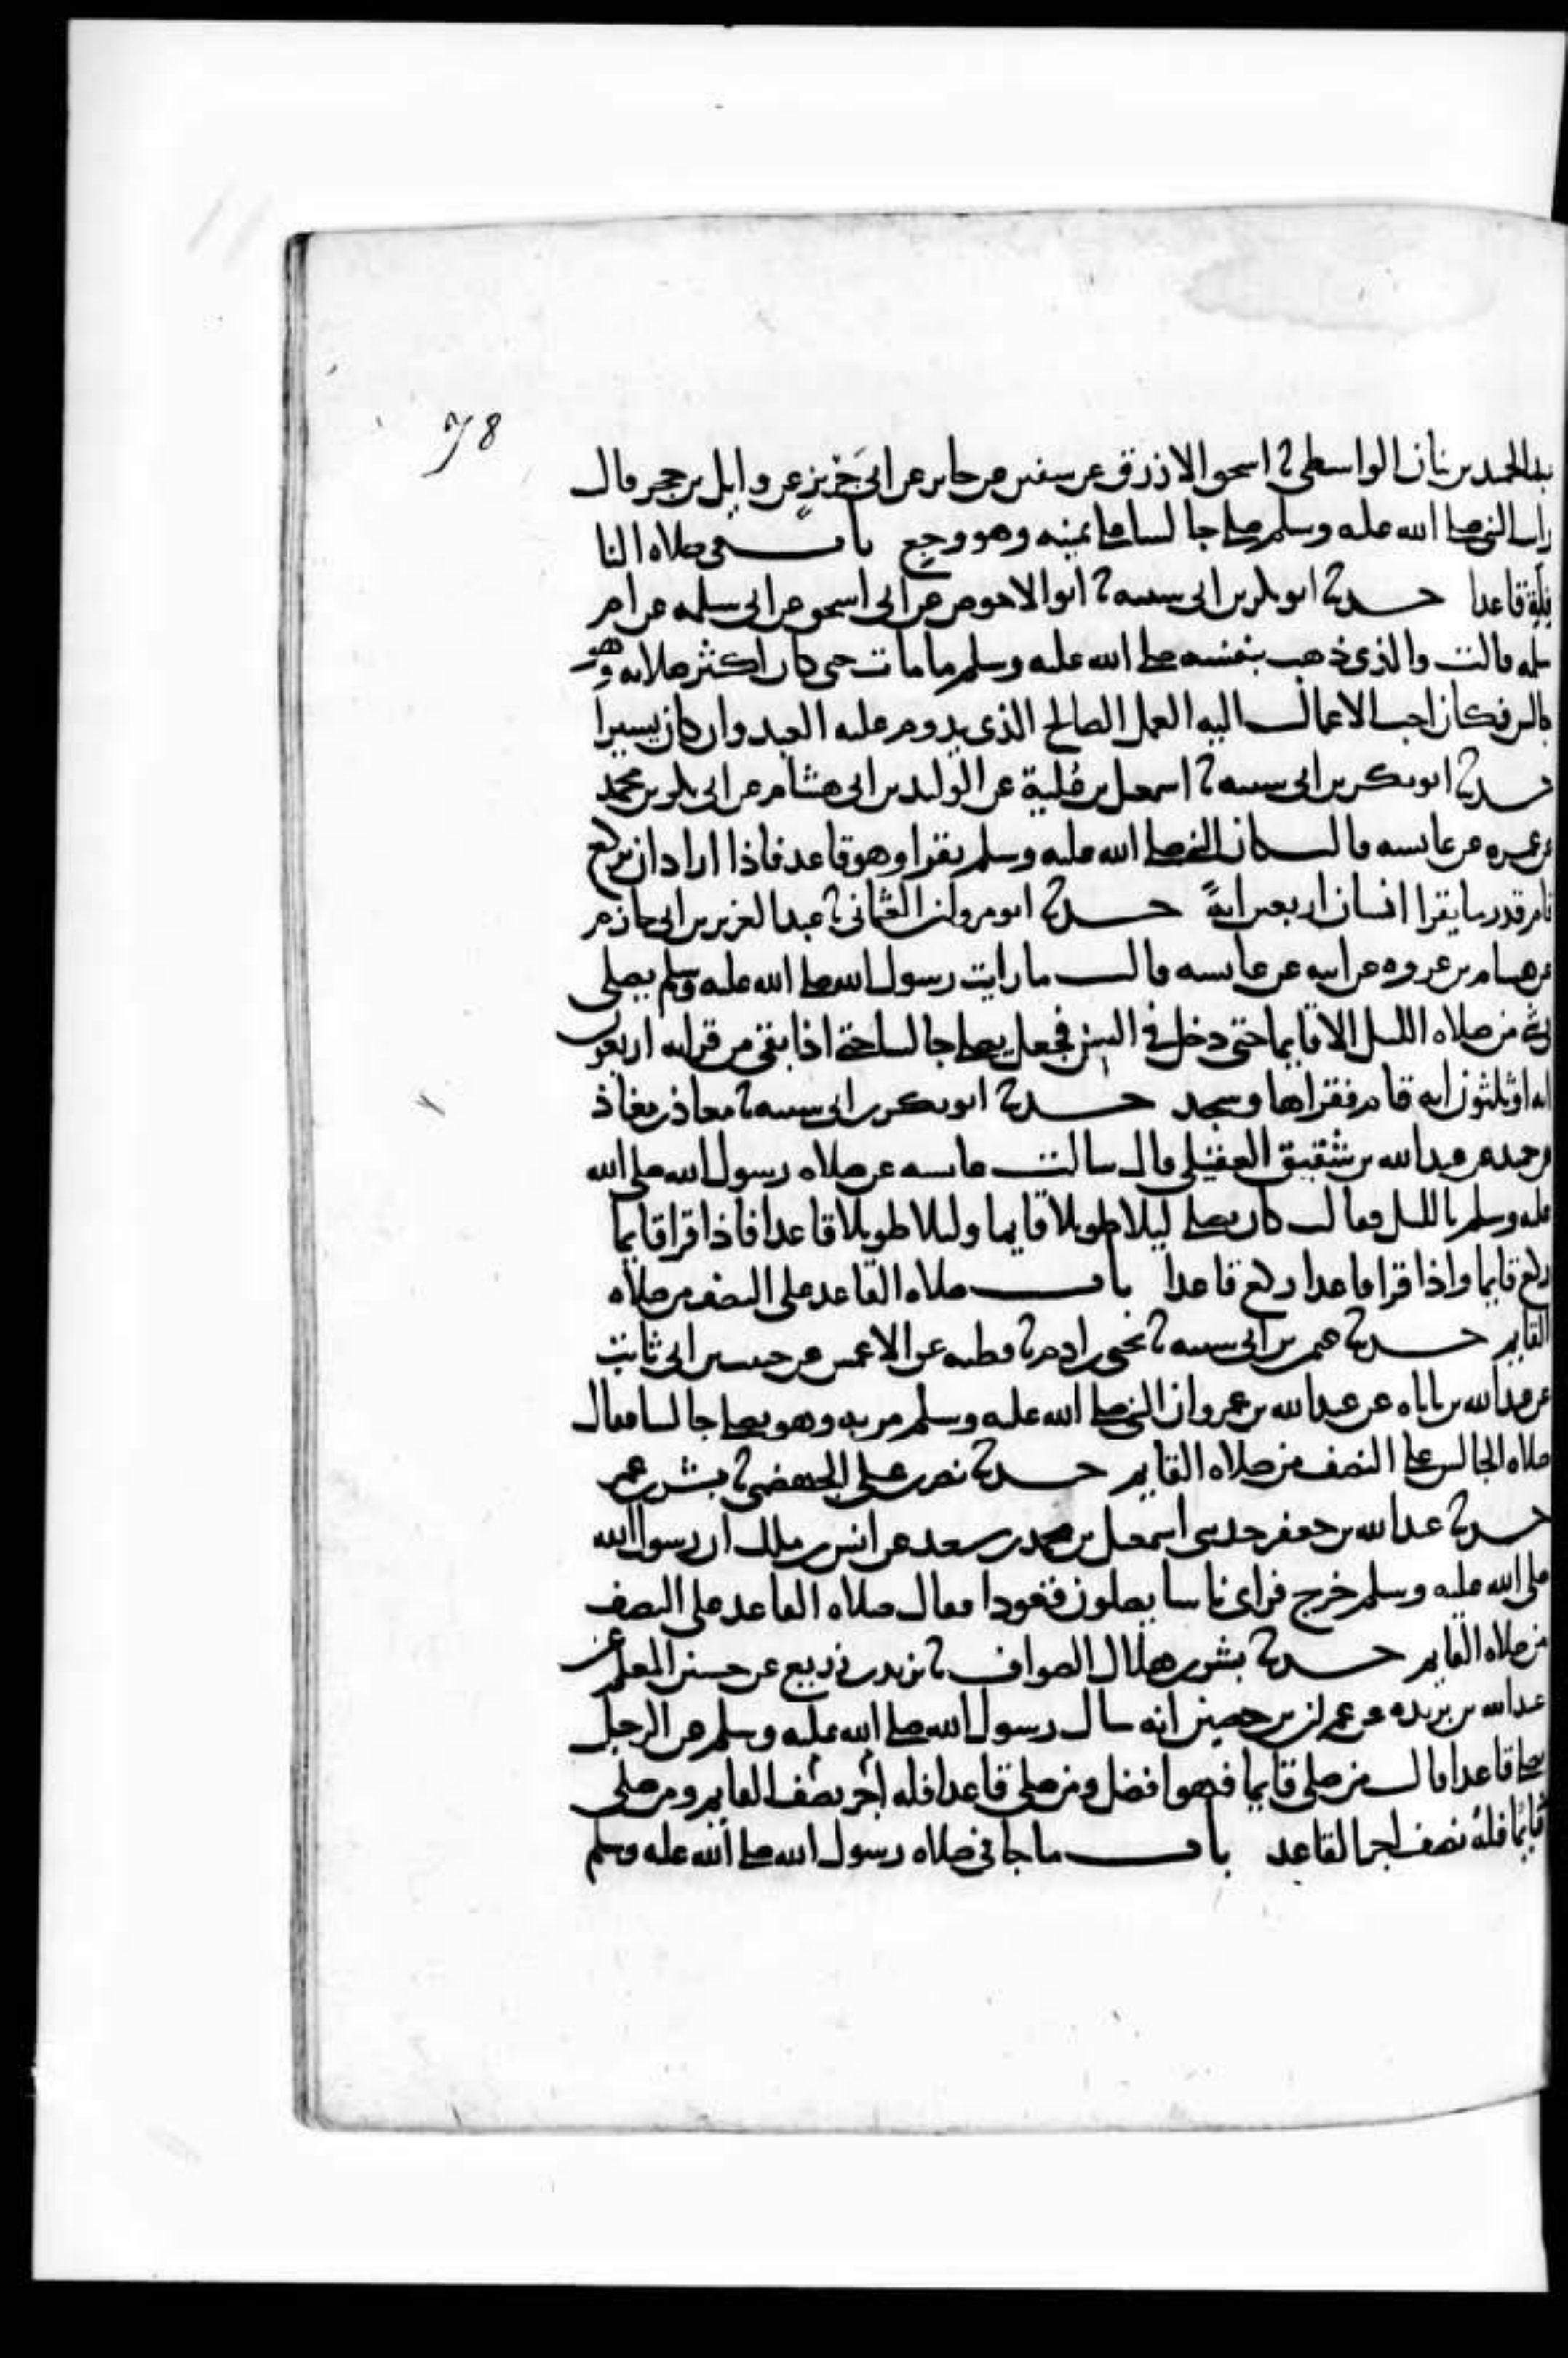 78
عبد الحميد بن بنان الواسطي ثنا اسحق الازرق عن سفين عن جابر عن ابي حريز عن وايل بن حجر قال
رايت النبي صلى الله عليه وسلم صلى جالسا على يمينه وهو وجع باب في صلاه النا
فلة قاعدا حدثنا ابو بكر بن ابي شيبه ثنا ابو الاحوص عن ابي اسحق عن ابي سلمه عن ام
سلمه قالت والذي ذهب بنفسه صلى الله عليه وسلم ما مات حتى كان اكثر صلاته وهو
جالس فكان احب الاعمال اليه العمل الصالح الذي يدوم عليه العبد وان كان يسيرا
حدثنا ابو بكر بن ابي شيبه ثنا اسمعيل بن علية عن الوليد بن ابي هشام عن ابي بكر بن محمد
عن عمره عن عايشه قالت كان النبي صلى الله عليه وسلم يقرا وهو قاعد فاذا اراد ان يركع
قام قدر ما يقرا انسان اربعين ايةً حدثنا ابو مروان العثماني ثنا عبد العزيز بن ابي حازم
عن هشام بن عروه عن ابيه عن عايشه قالت ما رايت رسول الله صلى الله عليه وسلم يصلي
في شي من صلاه الليل الا قايما حتى دخل في السن فجعل يصلي جالسا حتى اذا بقي من قراته اربعون
ايه او ثلثون ايه قام فقراها وسجد حدثنا ابو بكر بن ابي شيبه ثنا معاذ بن معاذ
عن حميد عن عبد الله بن شقيق العقيلي قال سالت عايشه عن صلاه رسول الله صلى الله
عليه وسلم بالليل فقالت كان يصلي ليلا طويلا قايما وليلا طويلا قاعدا فاذا قرا قايما
ركع قايما واذا قرا قاعدا ركع قاعدا باب صلاه القاعد على النصف من صلاه
القايم حدثنا عثمن بن ابي شيبه ثنا يحيى بن ادم ثنا قطبه عن الاعمش عن حبيب بن ابي ثابت
عن عبد الله بن باباه عن عبد الله بن عمرو ان النبي صلى الله عليه وسلم مر به وهو يصلي جالسا فقال
صلاه الجالس على النصف من صلاه القايم حدثنا نصر بن علي الجهضمي ثنا بشر بن عمر
حدثنا عبد الله بن جعفر حدثني اسمعيل بن محمد بن سعد عن انس بن ملك ان رسول الله
صلى الله عليه وسلم خرج فراى ناسا يصلون قعودا فقال صلاه القاعد على النصف
من صلاه القايم حدثنا بشر بن هلال الصواف ثنا يزيد بن زريع عن حسين المعلم عن
عبد الله بن بريده عن عمران بن حصين انه سال رسول الله صلى الله عليه وسلم عن الرجل
يصلي قاعدا قال من صلى قايما فهو افضل ومن صلى قاعدا فله اجر نصف القايم ومن صلى
نايمًا فله نصف اجر القاعد باب ما جا في صلاه رسول الله صلى الله عليه وسلم